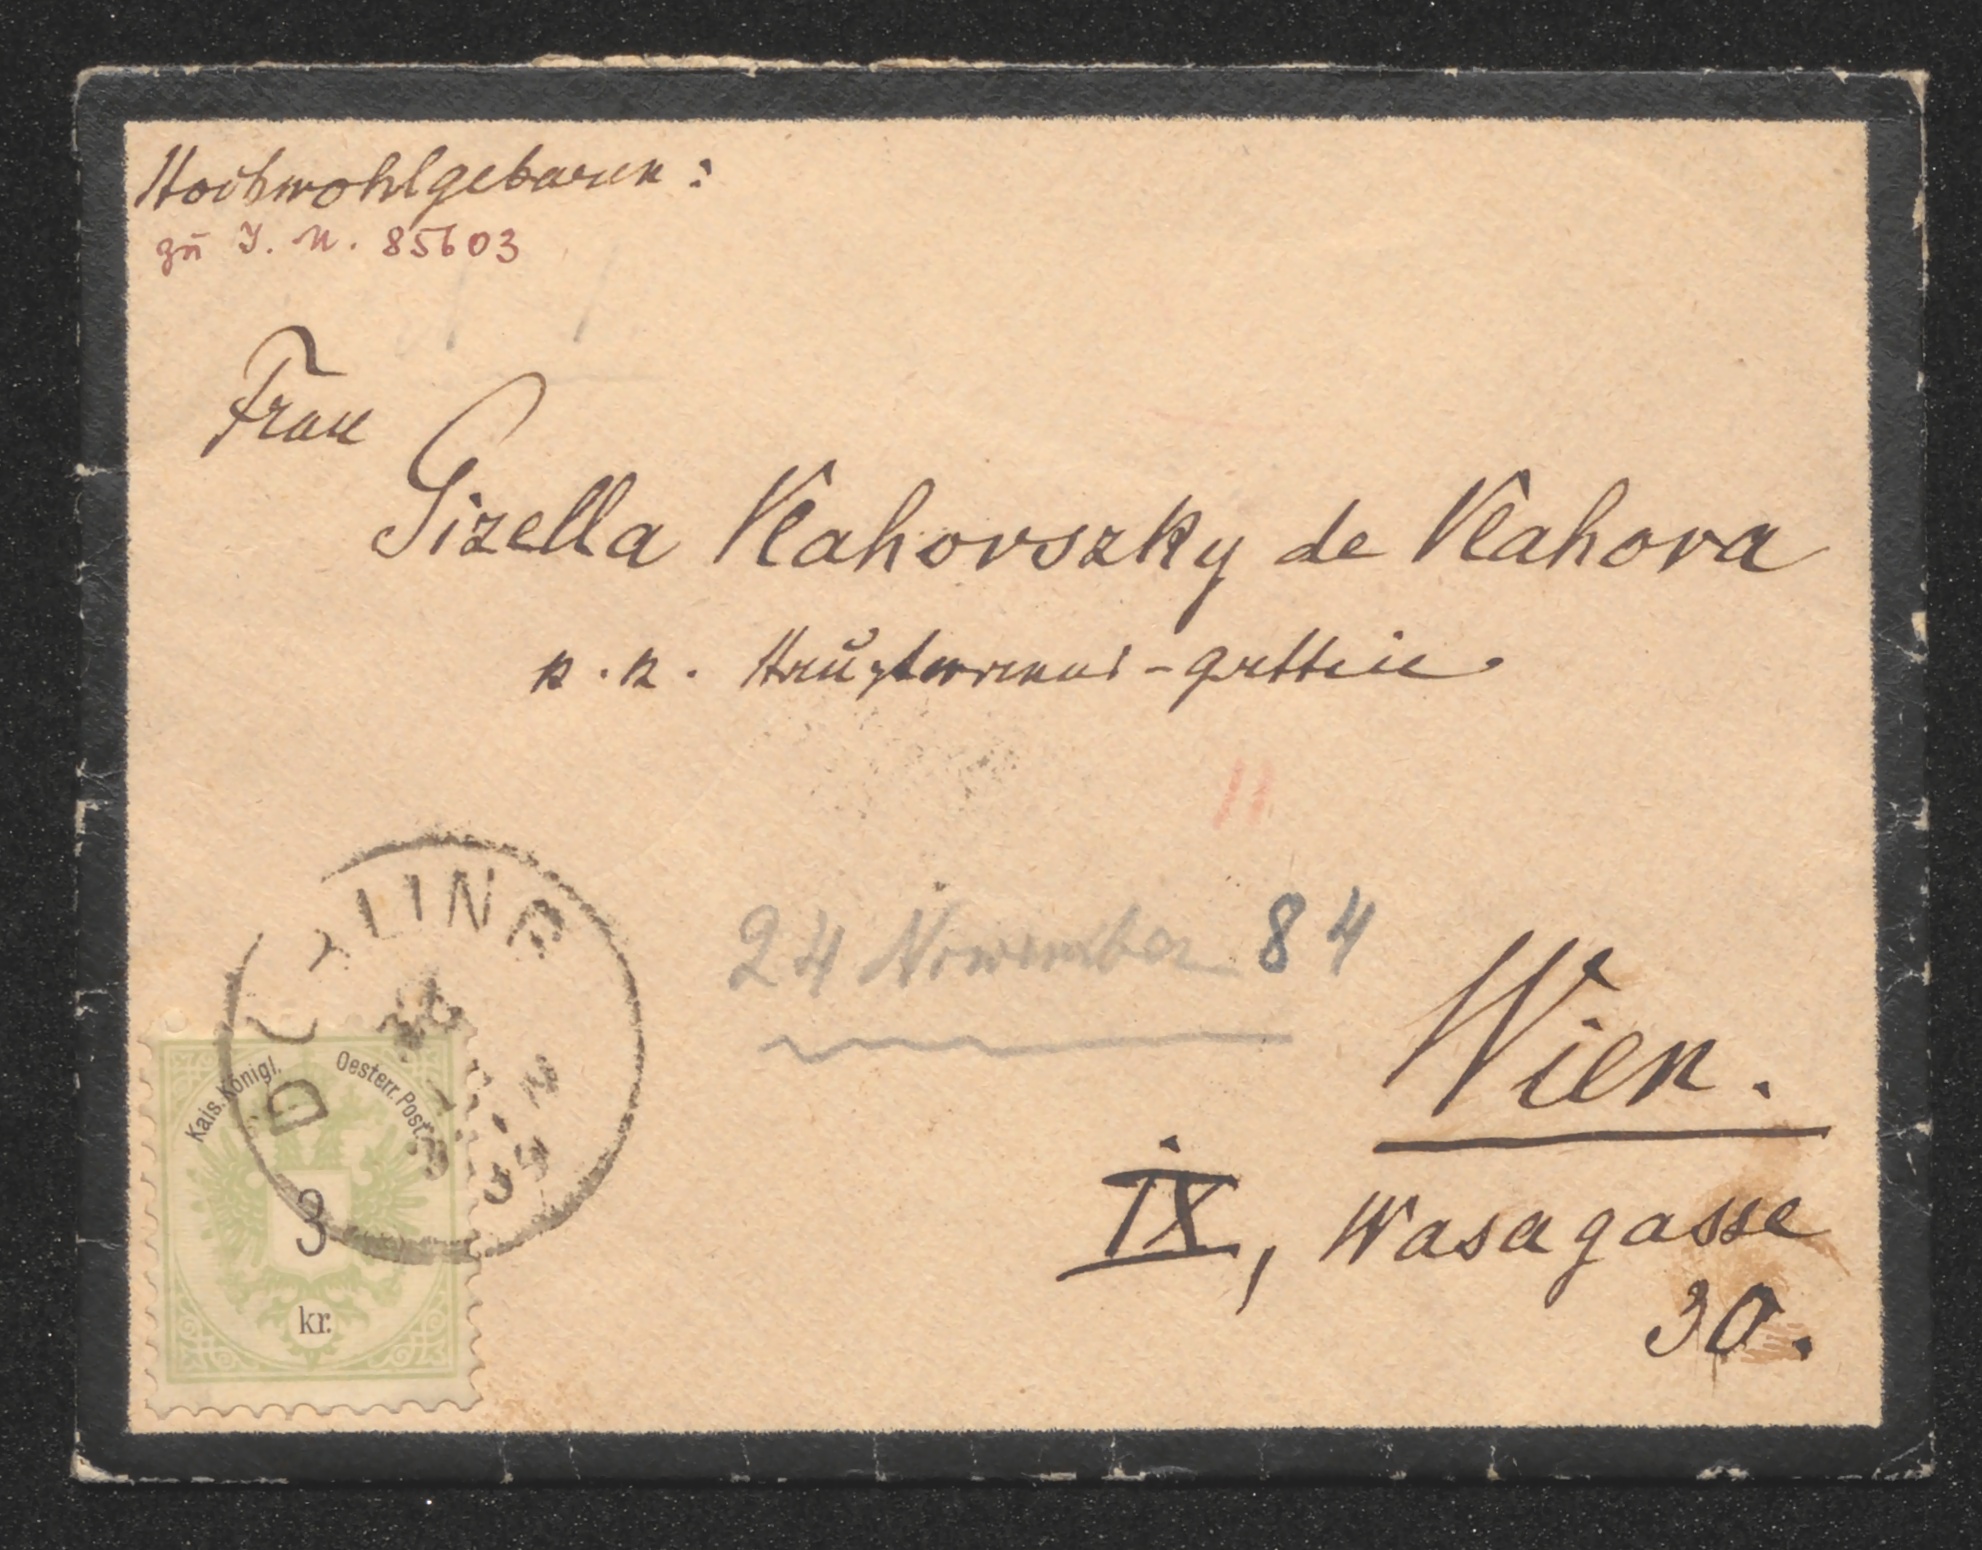 Hochwohlgeboren:
zu I. N. 85603
Frau
Gizella Vlahovszky de Vlahova
k. k. Hauptmanns-gattin.
24 November 84
Wien.
IX, Wasagasse
30.
Kais. Königl. Oesterr. Post.
3
kr.